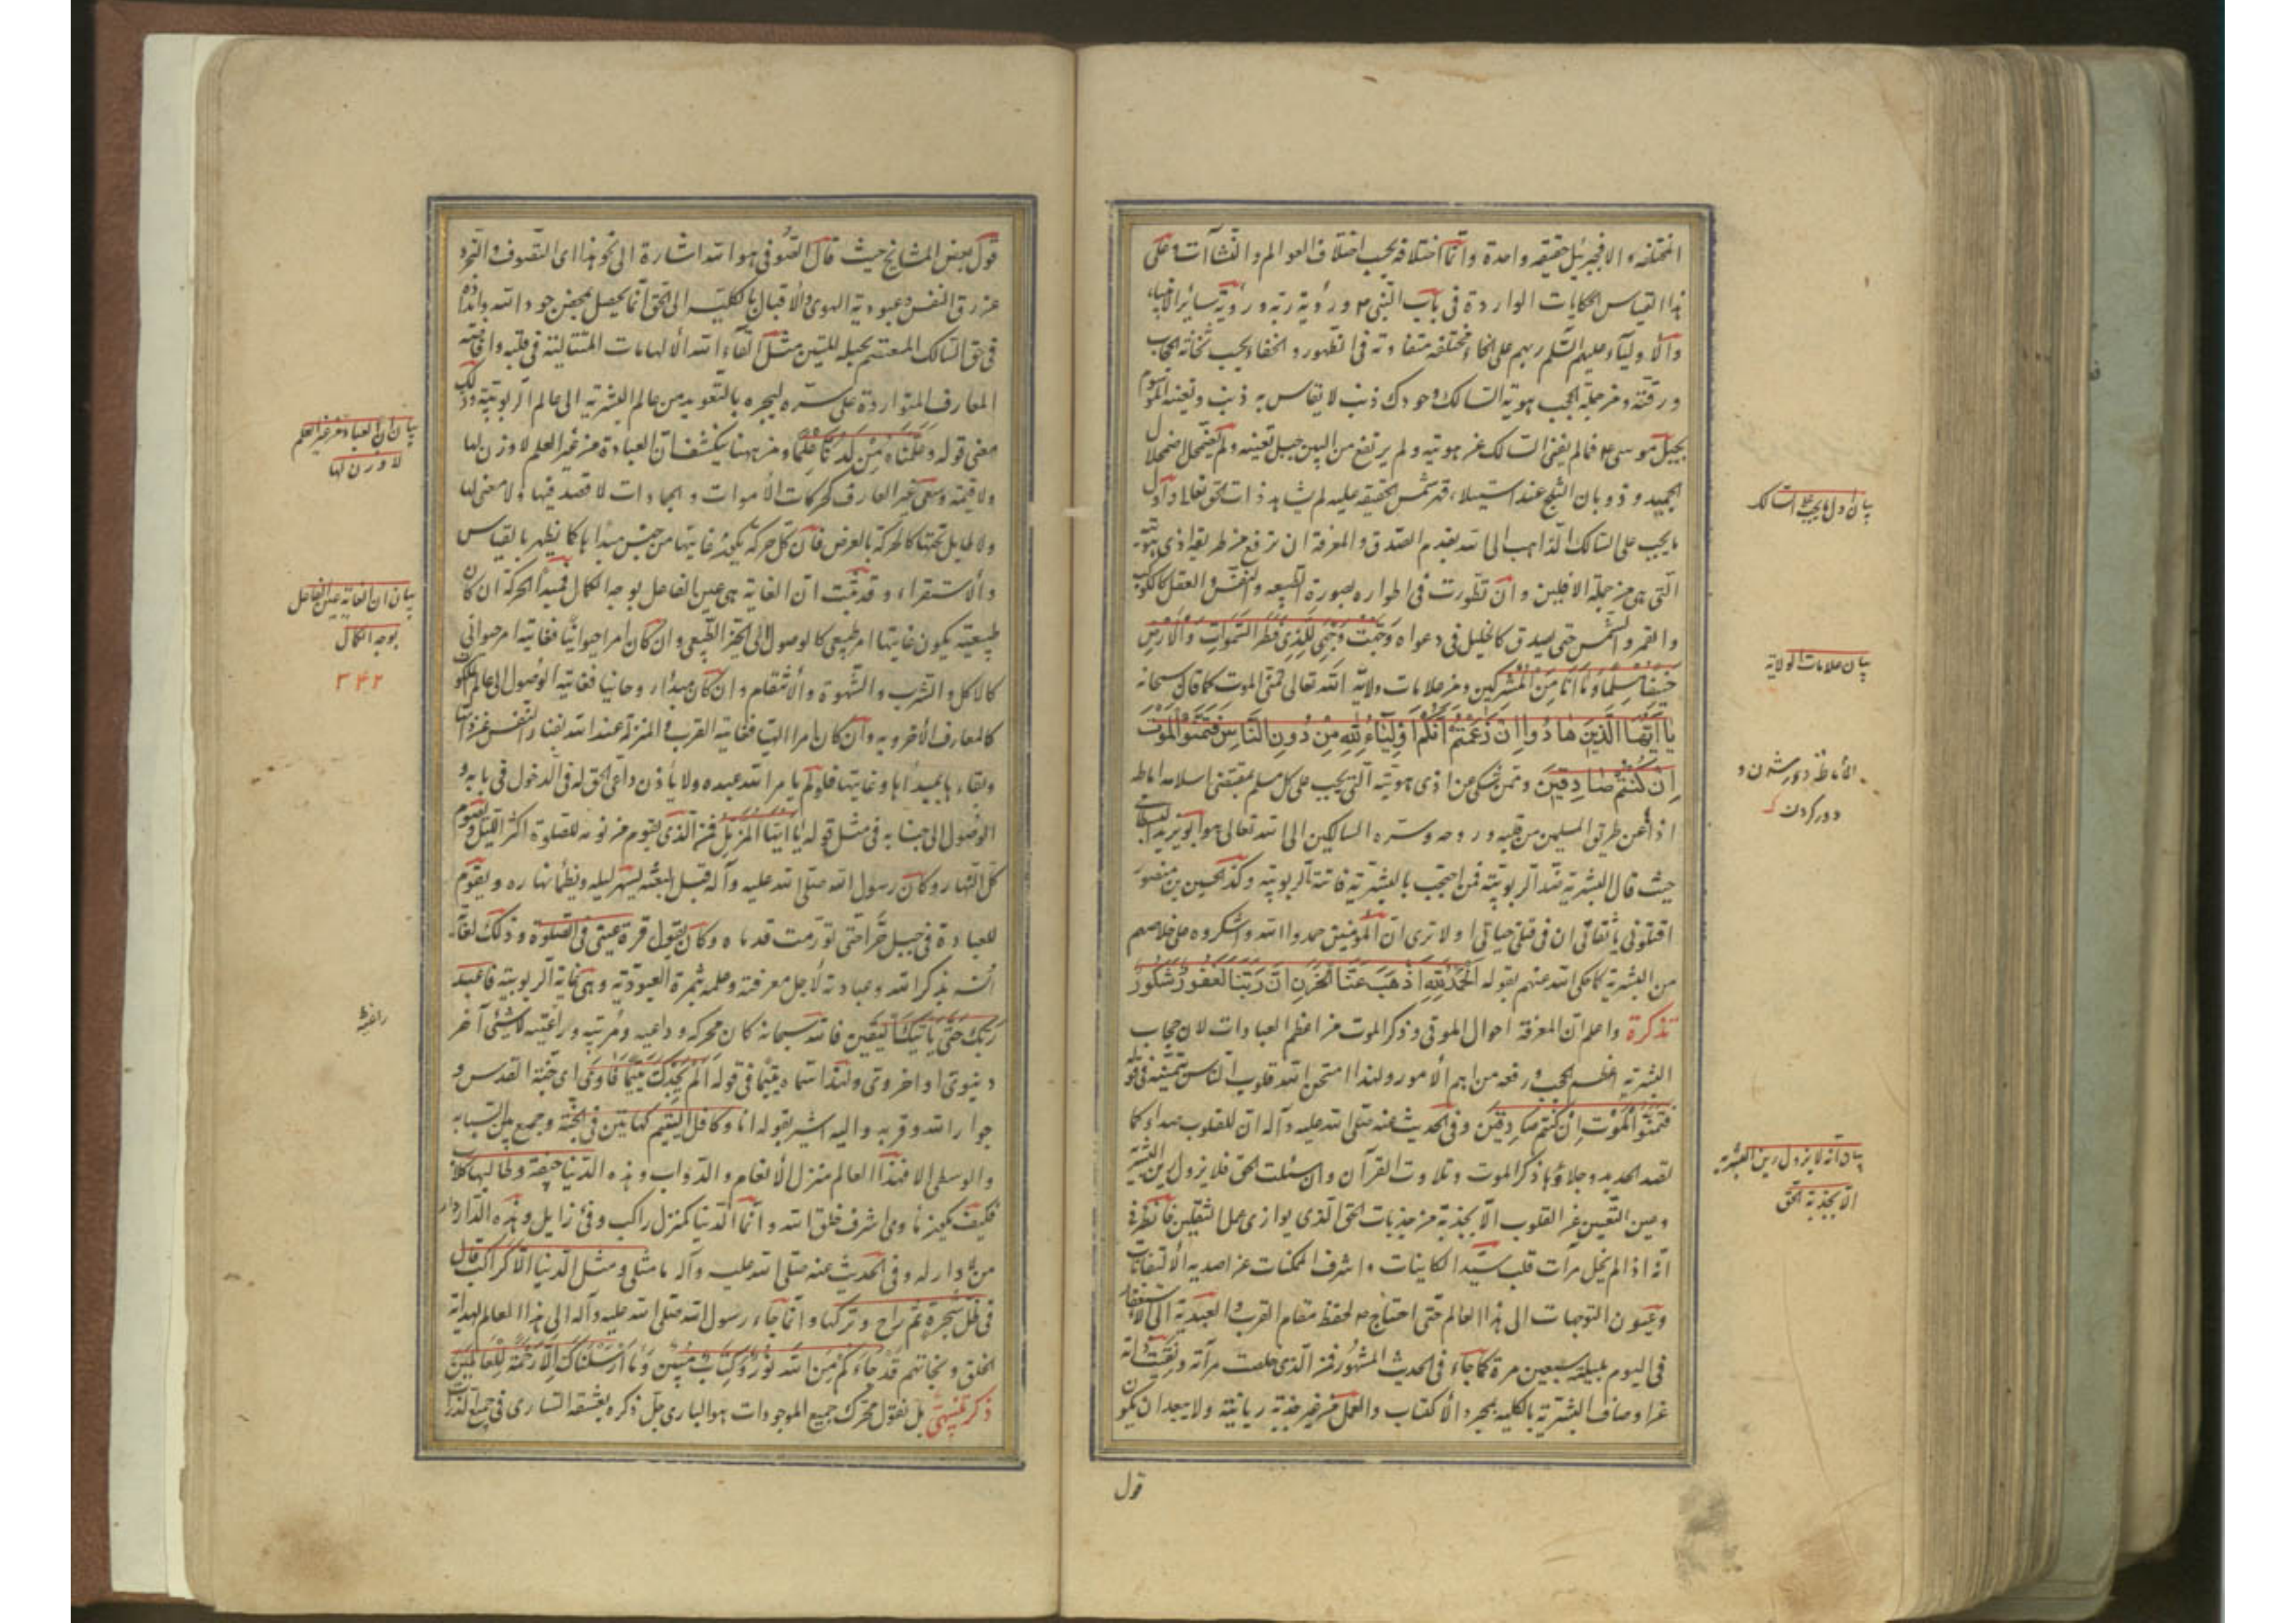 المختلفة والا فجبرئيل حقيقة واحدة وانما اختلافه بحسب اختلاف العوالم والنشآت وعلى
هذا القياس الحكايات الواردة فى باب النبى ورؤية ربه ورؤية سائر الانبياء
والاولياء عليهم السلم ربهم على انحاء مختلفة متفاوتة فى الظهور والخفاء بحسب ثخانة الحجاب
ورقته ومن جملة الحجب هوية السالك وجودك ذنب لا يقاس به ذنب وتعينه الموسوم
بجبل موسى فما لم يفن السالك عن هويته ولم يرتفع من البين جبل تعينه ولم يضمحل اضمحلال
الجميد وذوبان الثلج عند استيلاء قهر شمس الحقيقة عليه لم يشاهد ذات الحق تعالى واول
ما يجب على السالك الذاهب الى الله بقدم الصدق والمعرفة ان يرفع عن طريقه اذى هويته
التى هى من جملة الافلين وان تطورت فى اطواره بصورة الطبيعة والنفس والعقل كالكوكب
والقمر والشمس حتى يصدق كالخليل فى دعواه وجهت وجهى للذى فطر السموات والارض
حنيفا مسلما وما انا من المشركين ومن علامات ولاية الله تعالى تمنى الموت كما قال سبحانه
يا ايها الذين هادوا ان زعمتم انكم اولياء لله من دون الناس فتمنوا الموت
ان كنتم صادقين وممن شكى عن اذى هويته التى يجب على كل مسلم بمقتضى اسلامه اماطة
اذاها عن طريق المسلمين من قلبه وروحه وسره السالكين الى الله تعالى هو ابو يزيد البسطامى
حيث قال البشرية ضد الربوبية فمن احتجب بالبشرية فاتته الربوبية وكذا الحسين بن منصور
اقتلونى يا ثقاتى ان فى قتلى حياتى اولا ترى ان المؤمنين حمدوا الله واشكروه على خلاصهم
من البشرية كما حكى الله عنهم بقوله الحمد لله الذى اذهب عنا الحزن ان ربنا لغفور شكور
تذكرة واعلم ان المعرفة احوال الموتى وذكر الموت من اعظم العبادات لان حجاب
البشرية اعظم الحجب ورفعه من اهم الامور ولهذا امتحن الله قلوب الناس بتمنيه فى قوله
فتمنوا الموت ان كنتم صادقين وفى الحديث عنه صلى الله عليه وآله ان للقلوب صداء كما
لصد الحديد وجلاؤها ذكر الموت وتلاوت القرآن وان سئلت الحق فلا يزول رين البشرية
وعين التعين عن القلوب الا بجذبة من جذبات الحق الذى يوازى عمل الثقلين فانظر فى
انه اذا لم يخل مرآت قلب سيد الكاينات واشرف الممكنات عن اصدية الالتفاتات
وعيون التوجهات الى هذا العالم حتى احتاج لحفظ مقام القرب والعبدية الى الاستغفار
فى اليوم بليلة سبعين مرة كما جاء فى الحديث المشهور فمن الذى خلصت مرآته ونقيت ذاته
عن اوصاف البشرية بالكلية بمجرد الاكتساب والعمل من غير جذبة ربانية ولا يبعد ان يكون
قول
بيان اول ما يجب على السالك
بيان علامات الولاية
الاماطة دور شدن و
دور كردن
بيان انه لا يزول رين البشرية
الا بجذبة الحق
قول بعض المشايخ حيث قال الصوفى هو الله اشارة الى نحو هذا اى التصوف والتجرد
عن رق النفس وعبودية الهوى والاقبال بالكلية الى الحق انما يحصل بمحض جود الله وامداده
فى حق السالك المعتصم بحبله المتين مثل القاء الله الالهامات المتتالية فى قلبه وافاضته
المعارف المتواردة على سره ليجره بالتعويد من عالم البشرية الى عالم الربوبية وذلك
معنى قوله وعلمناه من لدنا علما ومن ههنا ينكشف ان العبادة من غير العلم لا وزن لها
ولا قيمة وسعى غير العارف كحركات الاموات والجمادات لا قصد فيها ولا معنى لها
ولا طايل تحتها كالحركة بالعرض فان كل حركة يكون غايتها من جنس مبداها كما يظهر بالقياس
والاستقراء وقد ثبت ان الغاية هى عين الفاعل بوجه الكمال فمبدأ الحركة ان كان
طبيعية يكون غايتها امر طبيعى كالوصول الى الحيز الطبيعى وان كان امرا حيوانيا فغايته امر حيوانى
كالاكل والشرب والشهوة والانتقام وان كان مبداء روحانيا فغايته الوصول الى عالم الملكوت
كالمعارف الاخروية وان كان امرا الهيا فغايته القرب والمنزلة عند الله بفناء النفس عن ذاتها
وبقاءها بمبدأها وغايتها فلو لم يامر الله عبده ولا ياذن داعى الحق له فى الدخول فى بابه و
الوصول الى جنابه فى مثل قوله يا ايها المزمل فمن الذى يقوم من نومه للصلوة اكثر الليل ويصوم
كل النهار وكان رسول الله صلى الله عليه وآله قبل البعثة ليسهر ليله ويظمأ نهاره ويقوم
للعبادة فى جبل حرا حتى تورمت قدماه وكان يقول قرة عينى فى الصلوة وذلك لغاية
انسه بذكر الله وعبادته لاجل معرفته وعلمه بثمرة العبودية وهى غاية الربوبية فاعبد
ربك حتى ياتيك اليقين فالله سبحانه كان محركه وداعيه ومربيه وراغبيه لا شئ آخر
دنيوى او اخروى ولهذا سماه يتيما فى قوله الم يجدك يتيما فآوى اى جنة القدس و
جوار الله وقربه واليه اشير بقوله انا وكافل اليتيم كهاتين فى الجنة وجمع بين السبابة
والوسطى والا فهذا العالم منزل الانعام والدواب وهذه الدنيا جيفة وطالبها كلاب
فكيف يكون ماوى اشرف خلق الله وانما الدنيا كمنزل راكب وفئ زايل وهذه الدار دار
من لا دار له وفى الحديث عنه صلى الله عليه وآله ما مثلى ومثل الدنيا الا كراكب قال
فى ظل شجرة ثم راح وتركها وانما جاء رسول الله صلى الله عليه وآله الى هذا العالم لهداية
الخلق ونجاتهم قد جاءكم من الله نور وكتاب مبين وما ارسلناك الا رحمة للعالمين
ذكر تنبيهى بل نقول محرك جميع الموجودات هو البارى جل ذكره بعشقه السارى فى جميع الذرات
بيان ان العبادة من غير العلم
لا وزن لها
بيان ان الغاية عين الفاعل
بوجه الكمال
۳۴۲
راغبيه